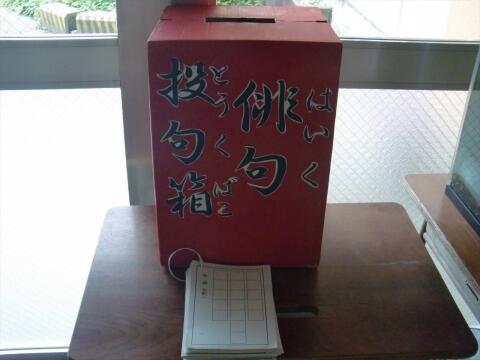 俳句
はいく
投句箱
とうくばこ